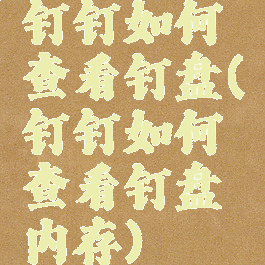 钉钉如何
查看钉盘(
钉钉如何
查看钉盘
内存)